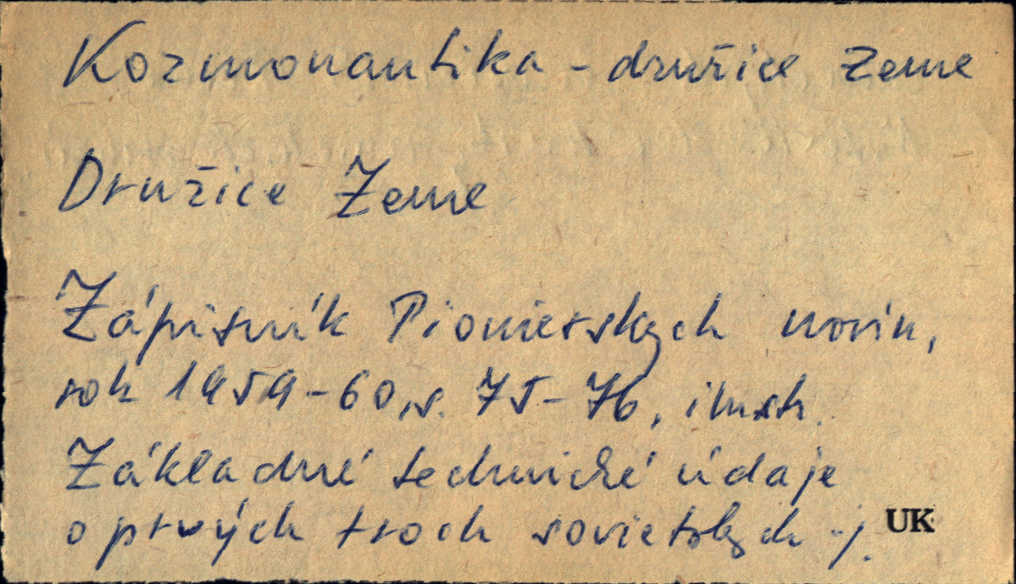 Kozmonautika - družice Zeme
Družice Zeme
Zápisník Pionierskych novín,
rok 1959-60, s. 75-76, ilustr.
Základné technické údaje
o prvých troch sovietskych -j.
UK